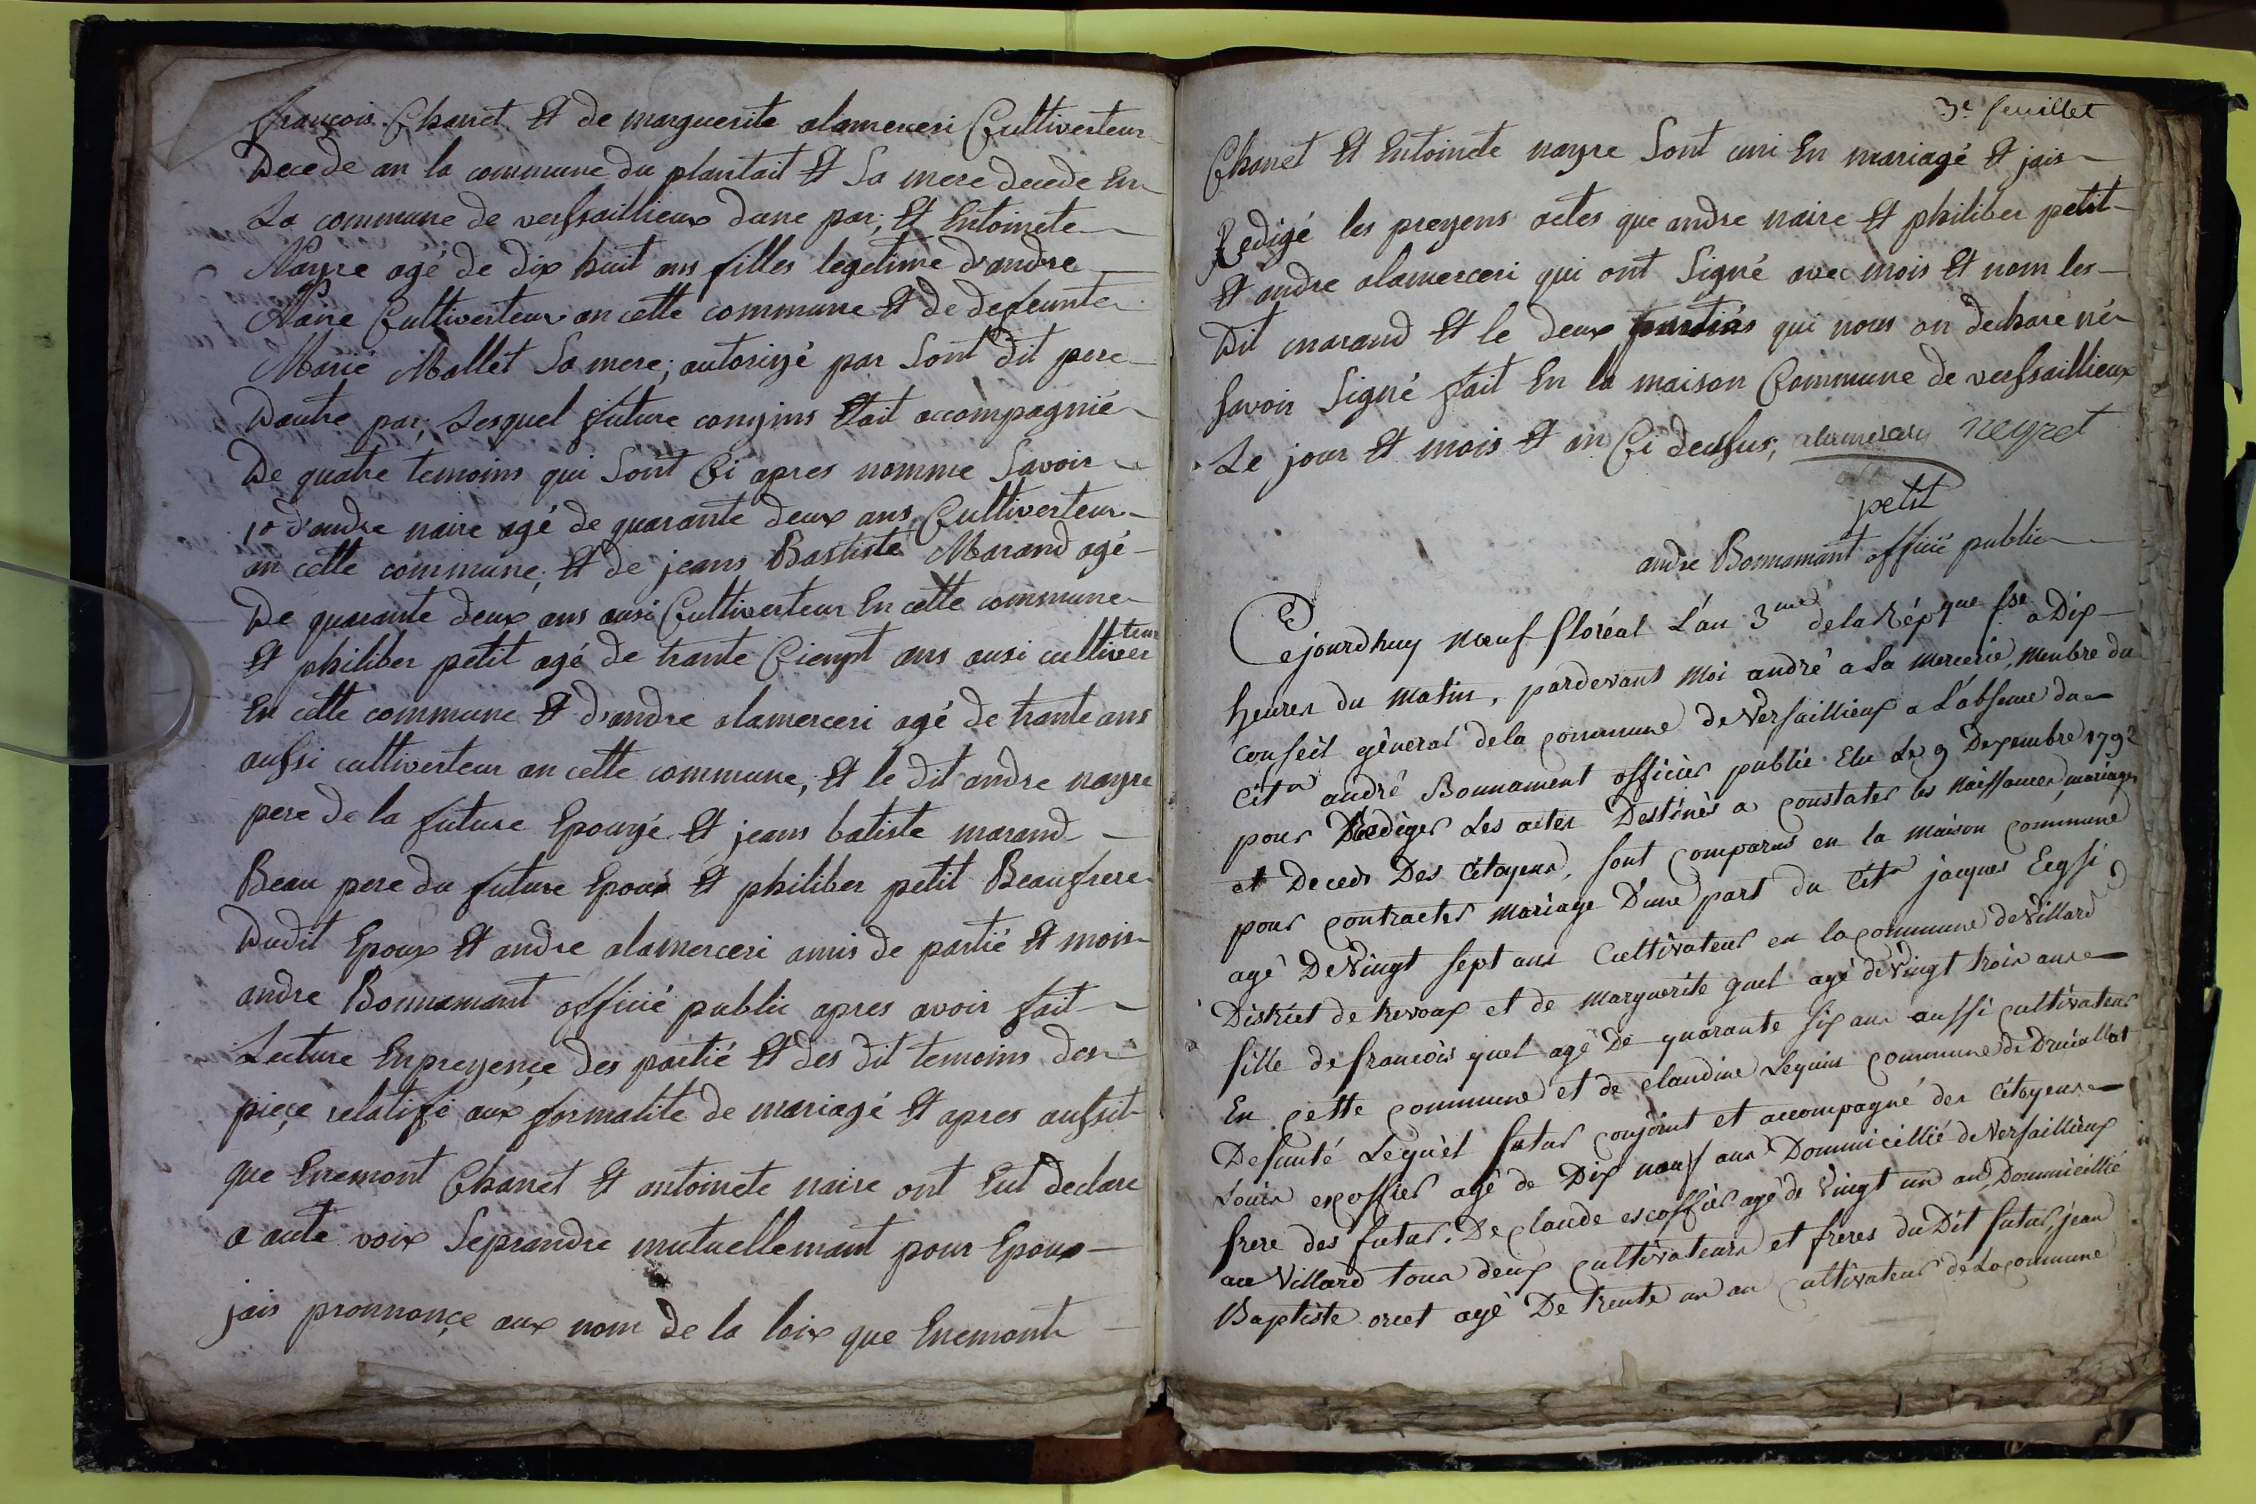 françois Chanet Et de marguerite alamerceri Cultiverteur
Decede an la commune du plantait Et Sa mere decede En
La commune de versaillieux dune par, Et Entoinete
Nayre agé de dix huit ans filles legetime d'andre
Naire Cultiverteur an cette commune Et de defeunte
Marié Mallet Sa mere, autorizé par Sont dit pere
Dautre par, Lesquel future conyins Etait accompagnié
De quatre temoins qui Sont Ci apres nomme Savoir
1º d'andre naire agé de quarante deux ans Cultiverteur
an cette commune, Et de jeans Bastiste Marand agé
De quarante deux ans ausi Cultiverteur En cette commune
Et philiber petit agé de trante Cienpt ans ausi cultiverteur
En cette commune Et d'andre alamerceri agé de trante ans
aussi cultiverteur an cette commune, Et le dit andre nayre
pere de la future Epouzé Et jeans batiste marand
Beau pere du future Epoux Et philiber petit Beaufrere
Dudit Epoux Et andre alamerceri amis de partié Et mois
andre Bonnamant officié public apres avoir fait
Lecture Enpreyençe des partié Et des dit temoins des
pieçe relatife aux formalite de mariagé Et apres aussit
que Enemont Chanet Et antoinete naire ont Eut declare
a aute voix Seprandre mutuellemant pour Epoux
jais pronnonçe aux nom de la loix que Enemont
3e feuillet
Chanet Et Entoinete nayre Sont uni En mariagé Et jais
Redigé les preyens actes que andre naire Et philiber petit
Et andre alamerceri qui ont Signé avec mois Et nom les
Dit marand Et le deux partiés qui nous on declaré né
Savoir Signé fait En la maison Commune de versaillieux
Le jour Et mois Et an Ci dessus, alamercery neyret
petit
andre Bonnamant officié public
Cejourdhuy nœuf floréal L'an 3me de la Répque fse a Dix
heures du matin, pardevant Moi andré a La mercerie, Menbre du
conseil géneral dela commune de Versaillieux a L'absence du
Citn andré Bonnament officier public Elu Le 9 Dexembre 1792
pour Redèger Les actes Destinés a constater les Naissances, mariages
et Decedx Des Citoyens, sont comparus en la Maison commune
pour contracter Mariage D'une part du Citn jacques
agé De Vingt sept ans Cultivateur en la commune de Villard
District de trevoux et de Marguerite quel agé de Vingt trois ans
fille de francois quel agé De quarante six ans aussi cultivateur
En cette commune et de claudine Lequin commune de Druillat
Defunté Lequel futur conjoint et accompagné des Citoyens
Louis escoffier agé de Dix neuf ans Dommicillié de Versaillieux
frere des futur. De claude escoffier agé de Vingt un an, Dommicillié
au Villard tous deux cultivateurs et freres du Dit futur, jean
Baptiste orcet agé De trente un an cultivateur de La commune